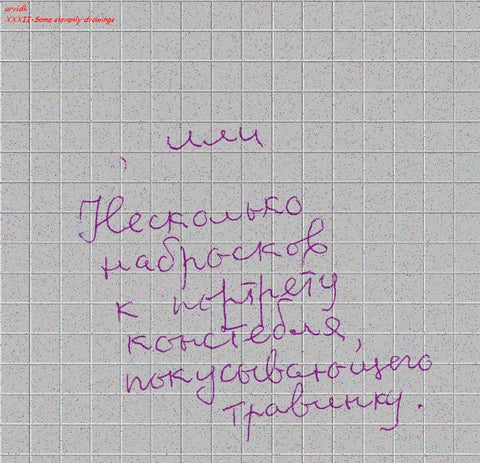 arvidk
XXXII-Some slovenly drawings
, или
Несколько
набросков
к портрету
констебля,
покусывающего
травинку.